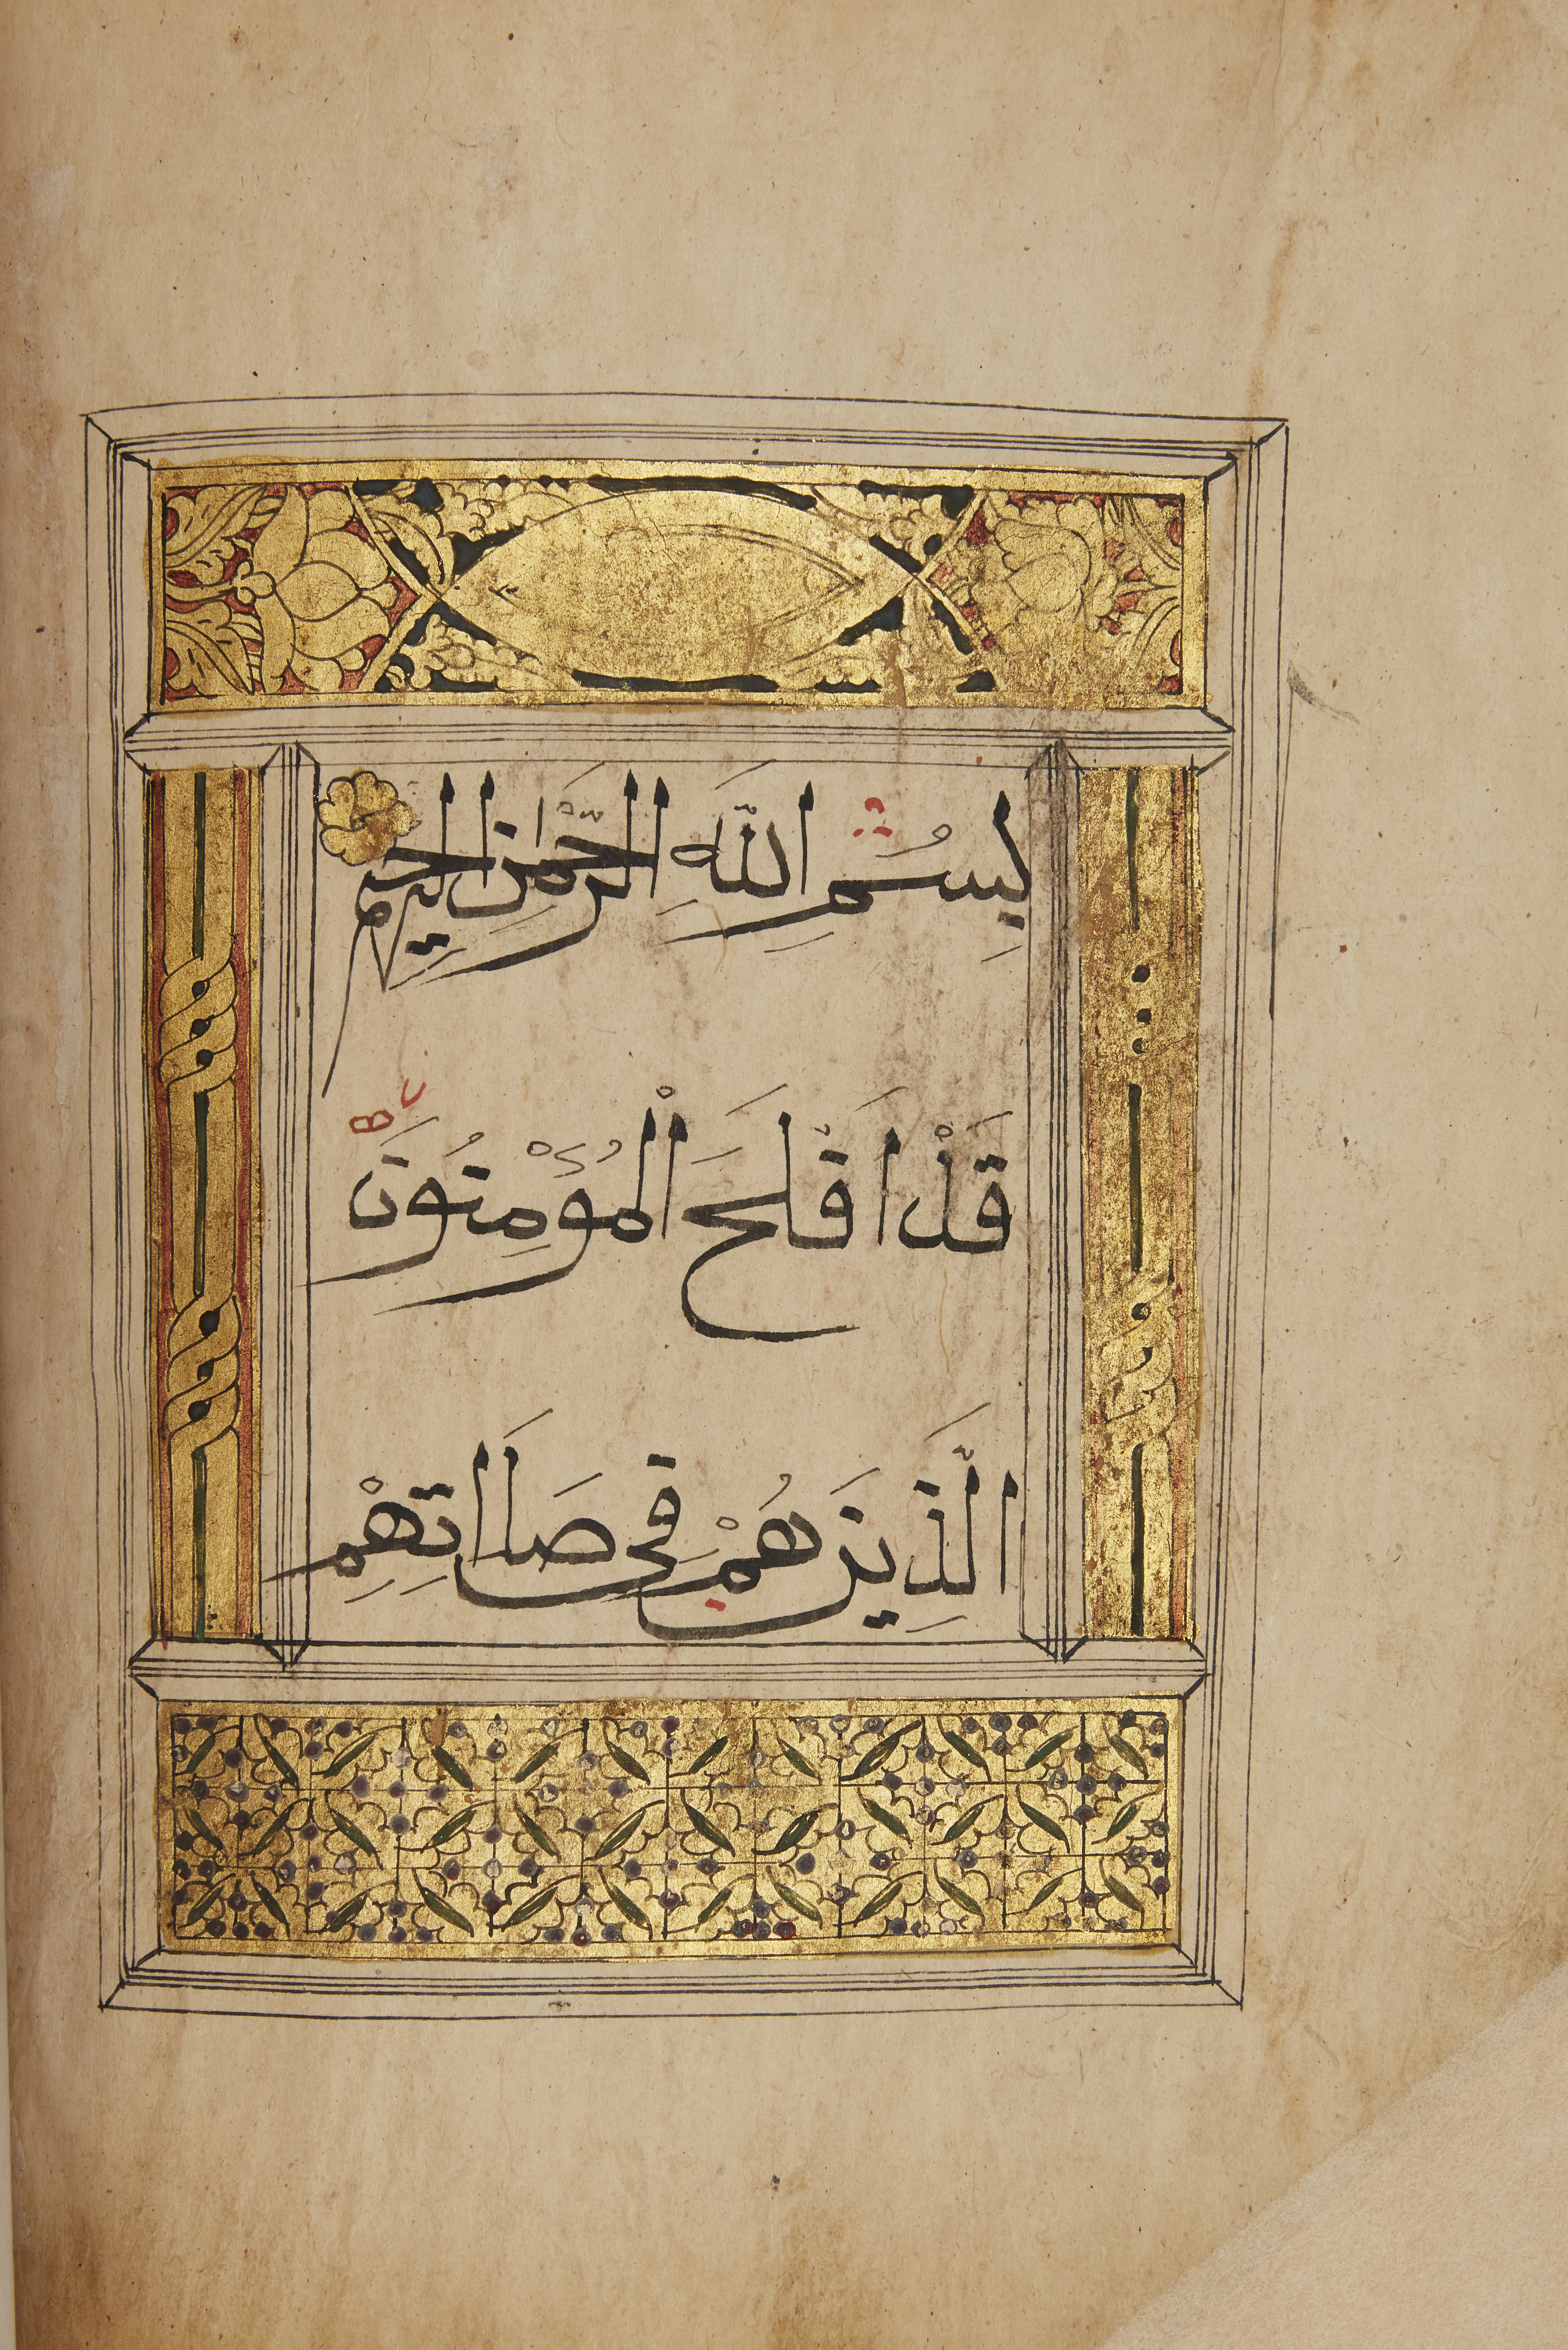 بِسْمِ اللَّهِ الرَّحْمَٰنِ الرَّحِيمِ
قَدْ اَفْلَحَ الْمُؤْمِنُونَ
الَّذِينَ هُمْ فِى صَلَاتِهِمْ